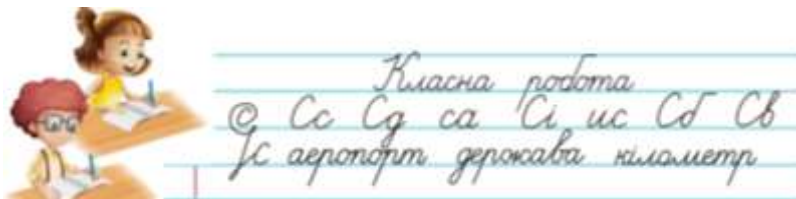 Класна робота
С Сс Сд са Сі ис Сб Св
Іс аеропорт держава кілометр